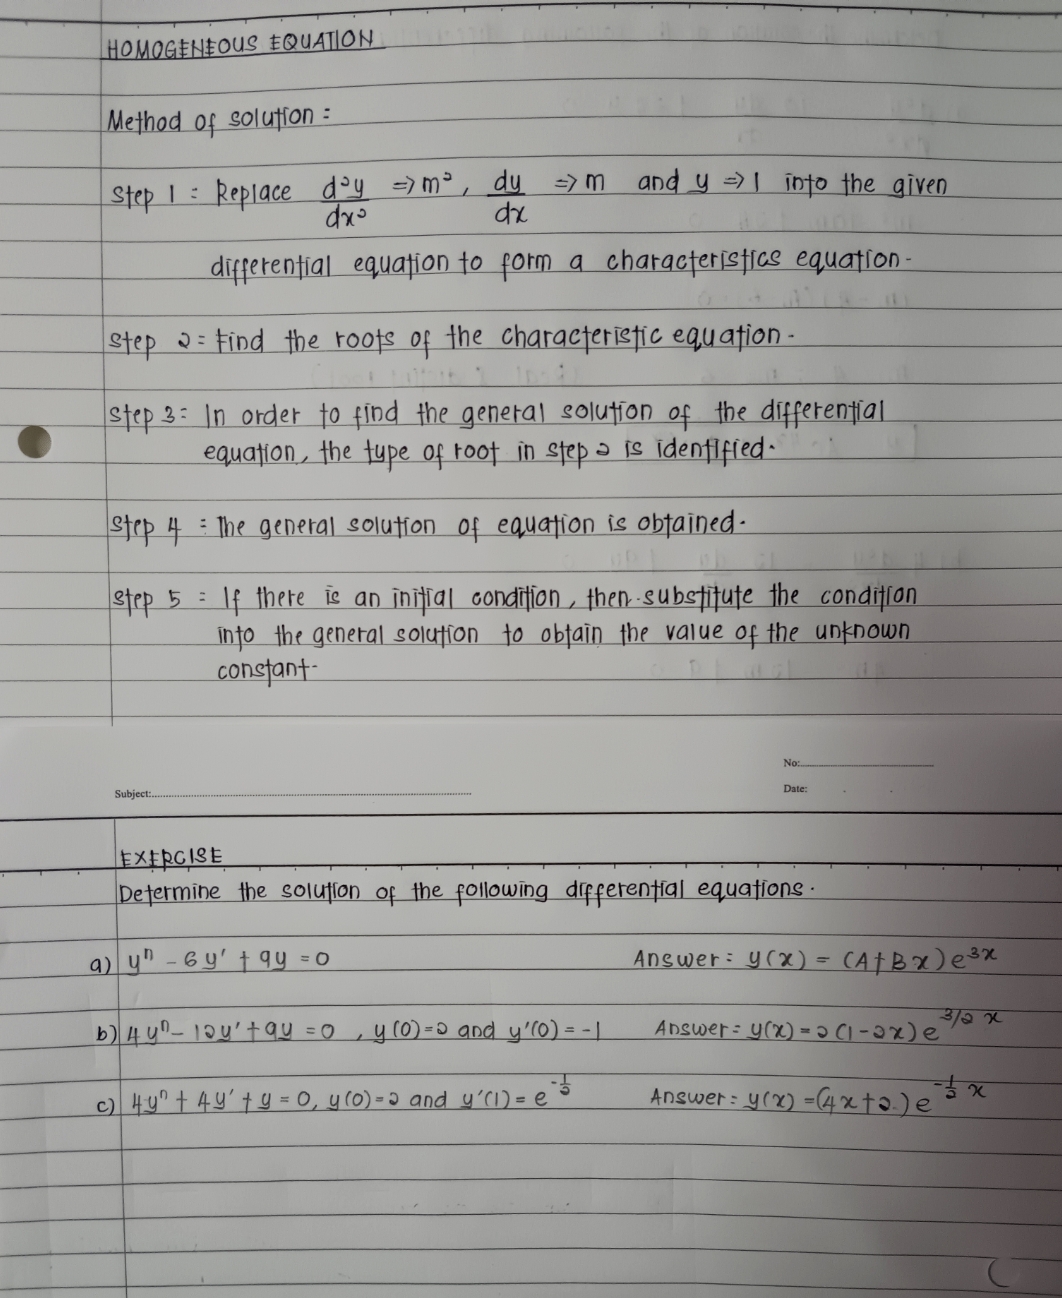 HOMOGENEOUS EQUATION
Method of solution :
Step 1 : Replace d²y/dx² => m², dy/dx => m and y => 1 into the given
differential equation to form a characteristics equation.
Step 2 : Find the roots of the characteristic equation.
Step 3 : In order to find the general solution of the differential
equation, the type of root in step 2 is identified.
Step 4 : The general solution of equation is obtained.
Step 5 : If there is an initial condition, then substitute the condition
into the general solution to obtain the value of the unknown
constant.
No:
Subject:
Date:
EXERCISE
Determine the solution of the following differential equations.
a) y" - 6y' + 9y = 0 Answer : y(x) = (A+Bx)e^3x
b) 4y" - 12y' + 9y = 0, y(0)=2 and y'(0) = -1 Answer : y(x) = 2(1-2x)e^3/2 x
c) 4y" + 4y' + y = 0, y(0)=2 and y'(1) = e^-1/2 Answer : y(x) = (4x+2)e^-1/2 x